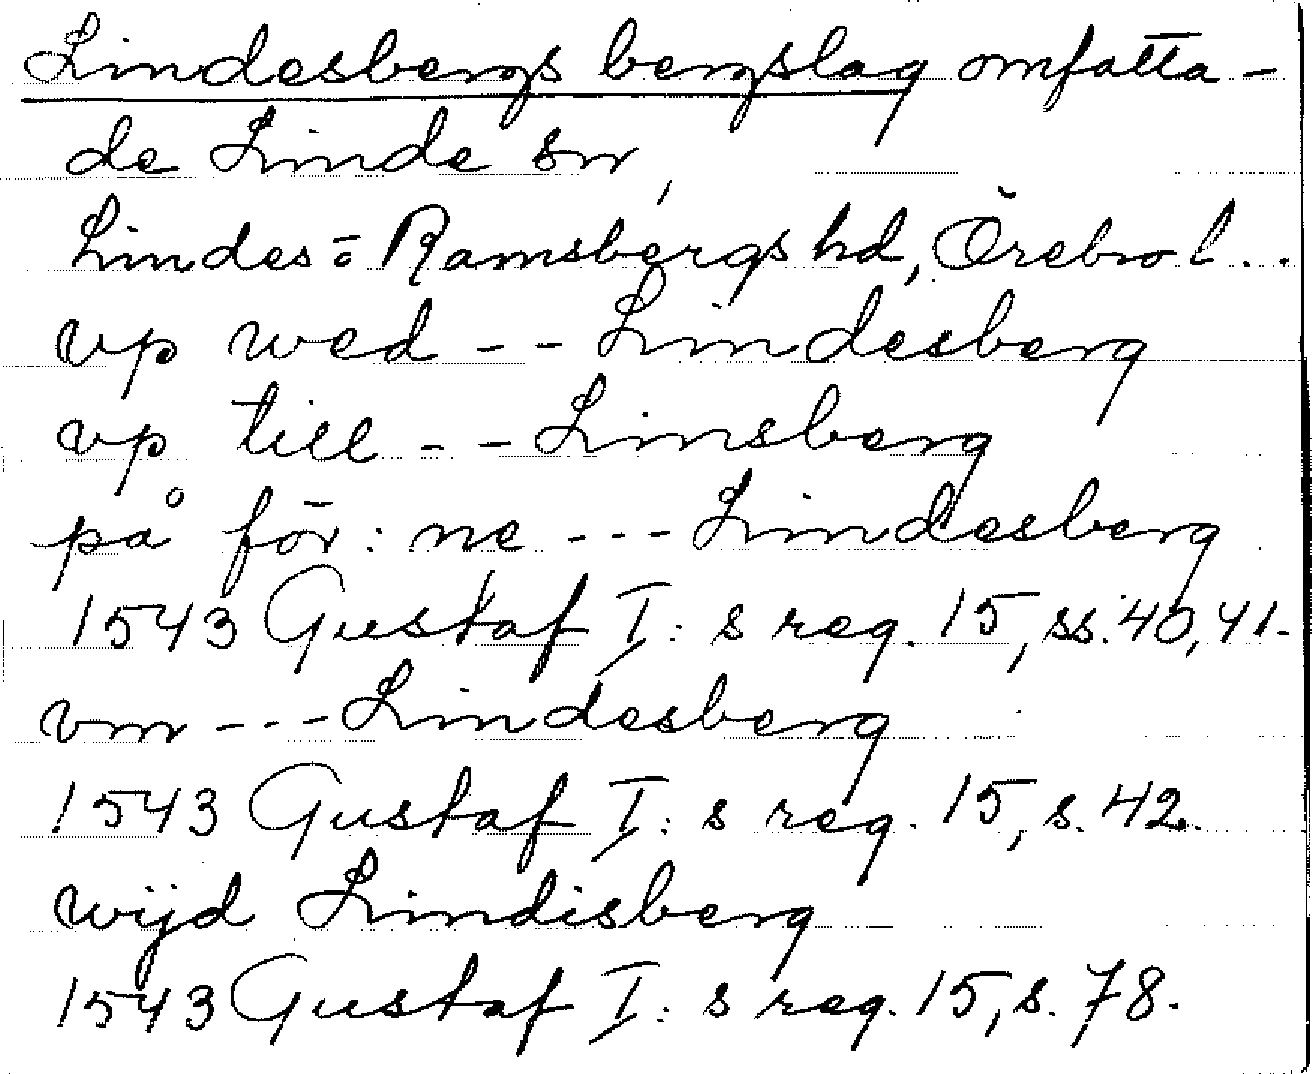 Lindesbergs bergslag omfatta-
de Linde sn,
Lindes= o Ramsbergs hd, Örebro l...
vp wed -- Lindesberg
vp till -- Linsberg
på för: ne --- Lindesberg
1543 Gustaf I: s reg. 15, ss. 40, 41.
vm --- Lindesberg
1543 Gustaf I: s reg. 15, s. 42.
wijd Lindisberg
1543 Gustaf I: s reg. 15, s. 78.